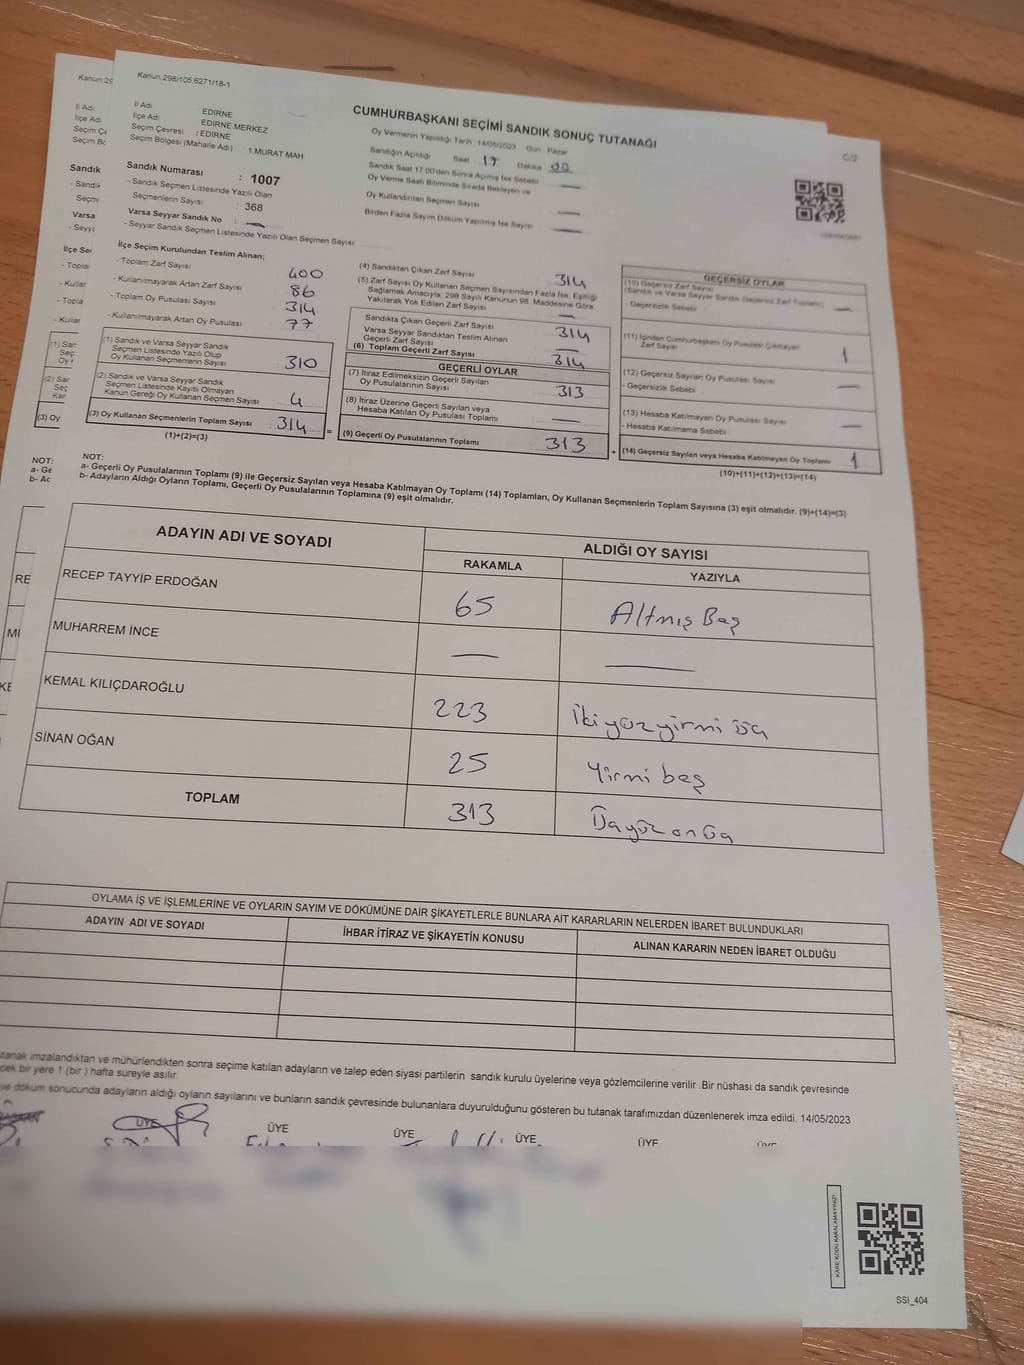 Kanun:298/105;6271/18-1
İl Adı EDİRNE
İlçe Adı EDİRNE MERKEZ
Seçim Çevresi : EDİRNE
Seçim Bölgesi (Mahalle Adı) : 1.MURAT MAH.
CUMHURBAŞKANI SEÇİMİ SANDIK SONUÇ TUTANAĞI
C/2
Oy Vermenin Yapıldığı Tarih 14/05/2023 Gün Pazar
Sandığın Açıldığı Saat 17 Dakika 00
Sandık Saat 17:00'den Sonra Açılmış İse Sebebi —
Oy Verme Saati Bitiminde Sırada Bekleyen ve
Oy Kullandırılan Seçmen Sayısı —
Birden Fazla Sayım Döküm Yapılmış İse Sayısı —
Sandık Numarası : 1007
- Sandık Seçmen Listesinde Yazılı Olan
Seçmenlerin Sayısı : 368
Varsa Seyyar Sandık No : —
- Seyyar Sandık Seçmen Listesinde Yazılı Olan Seçmen Sayısı
İlçe Seçim Kurulundan Teslim Alınan;
- Toplam Zarf Sayısı 400
- Kullanılmayarak Artan Zarf Sayısı 86
- Toplam Oy Pusulası Sayısı 314
- Kullanılmayarak Artan Oy Pusulası 77
(1) Sandık ve Varsa Seyyar Sandık
Seçmen Listesinde Yazılı Olup
Oy Kullanan Seçmenlerin Sayısı 310
(2) Sandık ve Varsa Seyyar Sandık
Seçmen Listesinde Kayıtlı Olmayan
Kanun Gereği Oy Kullanan Seçmen Sayısı 4
(3) Oy Kullanan Seçmenlerin Toplam Sayısı : 314
(1)+(2)=(3)
(4) Sandıktan Çıkan Zarf Sayısı 314
(5) Zarf Sayısı Oy Kullanan Seçmen Sayısından Fazla İse, Eşitliği
Sağlamak Amacıyla; 298 Sayılı Kanunun 98. Maddesine Göre
Yakılarak Yok Edilen Zarf Sayısı —
Sandıkta Çıkan Geçerli Zarf Sayısı 314
Varsa Seyyar Sandıktan Teslim Alınan
Geçerli Zarf Sayısı —
(6) Toplam Geçerli Zarf Sayısı 314
GEÇERLİ OYLAR
(7) İtiraz Edilmeksizin Geçerli Sayılan
Oy Pusulalarının Sayısı 313
(8) İtiraz Üzerine Geçerli Sayılan veya
Hesaba Katılan Oy Pusulası Toplamı —
= (9) Geçerli Oy Pusulalarının Toplamı 313
GEÇERSİZ OYLAR
(10) Geçersiz Zarf Sayısı
(Sandık ve Varsa Seyyar Sandık Geçersiz Zarf Toplamı)
- Geçersizlik Sebebi : —
(11) İçinden Cumhurbaşkanı Oy Pusulası Çıkmayan
Zarf Sayısı 1
(12) Geçersiz Sayılan Oy Pusulası Sayısı —
- Geçersizlik Sebebi:
(13) Hesaba Katılmayan Oy Pusulası Sayısı —
- Hesaba Katılmama Sebebi :
+ (14) Geçersiz Sayılan veya Hesaba Katılmayan Oy Toplamı 1
(10)+(11)+(12)+(13)=(14)
NOT:
a- Geçerli Oy Pusulalarının Toplamı (9) ile Geçersiz Sayılan veya Hesaba Katılmayan Oy Toplamı (14) Toplamları, Oy Kullanan Seçmenlerin Toplam Sayısına (3) eşit olmalıdır. (9)+(14)=(3)
b- Adayların Aldığı Oyların Toplamı, Geçerli Oy Pusulalarının Toplamına (9) eşit olmalıdır.
ADAYIN ADI VE SOYADI ALDIĞI OY SAYISI
RAKAMLA YAZIYLA
RECEP TAYYİP ERDOĞAN 65 Altmış Beş
MUHARREM İNCE — —
KEMAL KILIÇDAROĞLU 223 İki yüz yirmi üç
SİNAN OĞAN 25 Yirmi beş
TOPLAM 313 Üçyüz onüç
OYLAMA İŞ VE İŞLEMLERİNE VE OYLARIN SAYIM VE DÖKÜMÜNE DAİR ŞİKAYETLERLE BUNLARA AİT KARARLARIN NELERDEN İBARET BULUNDUKLARI
ADAYIN ADI VE SOYADI İHBAR İTİRAZ VE ŞİKAYETİN KONUSU ALINAN KARARIN NEDEN İBARET OLDUĞU
tanak imzalandıktan ve mühürlendikten sonra seçime katılan adayların ve talep eden siyasi partilerin sandık kurulu üyelerine veya gözlemcilerine verilir .Bir nüshası da sandık çevresinde
cek bir yere 1 (bir ) hafta süreyle asılır.
ve döküm sonucunda adayların aldığı oyların sayılarını ve bunların sandık çevresinde bulunanlara duyurulduğunu gösteren bu tutanak tarafımızdan düzenlenerek imza edildi. 14/05/2023
BAŞKAN ÜYE ÜYE ÜYE ÜYE ÜYE ÜYE
KARE KODU KARALAMAYINIZ!
SSI_404